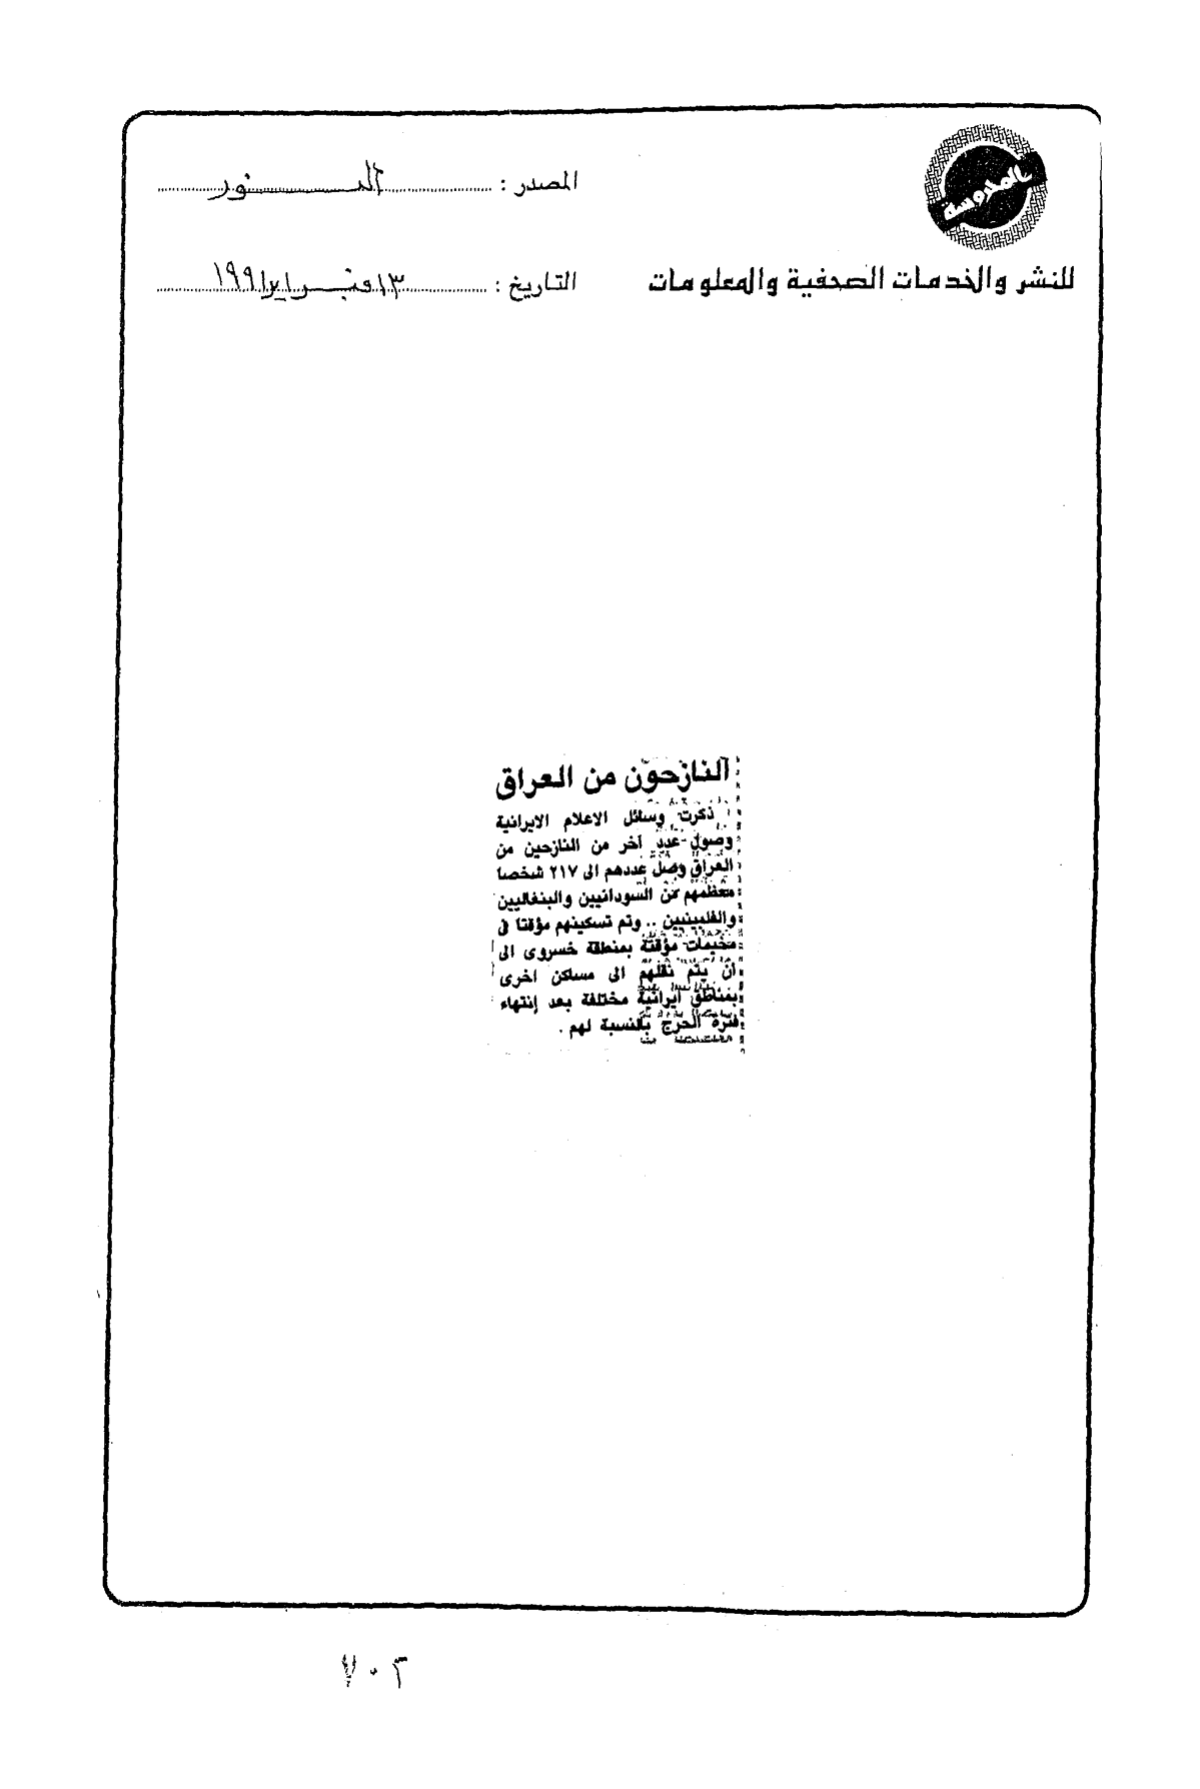 المحروسة
للنشر والخدمات الصحفية والمعلومات
المصدر : النور
التاريخ : ١٣ فبراير ١٩٩١
النازحون من العراق
ذكرت وسائل الاعلام الايرانية
وصول عدد آخر من النازحين من
العراق وصل عددهم الى ٢١٧ شخصا
معظمهم من السودانيين والبنغاليين
والفلبينيين .. وتم تسكينهم مؤقتا فى
مخيمات مؤقتة بمنطقة خسروى الى
ان يتم نقلهم الى مساكن اخرى
بمناطق ايرانية مختلفة بعد إنتهاء
فترة الحرج بالنسبة لهم .
٧٠٢